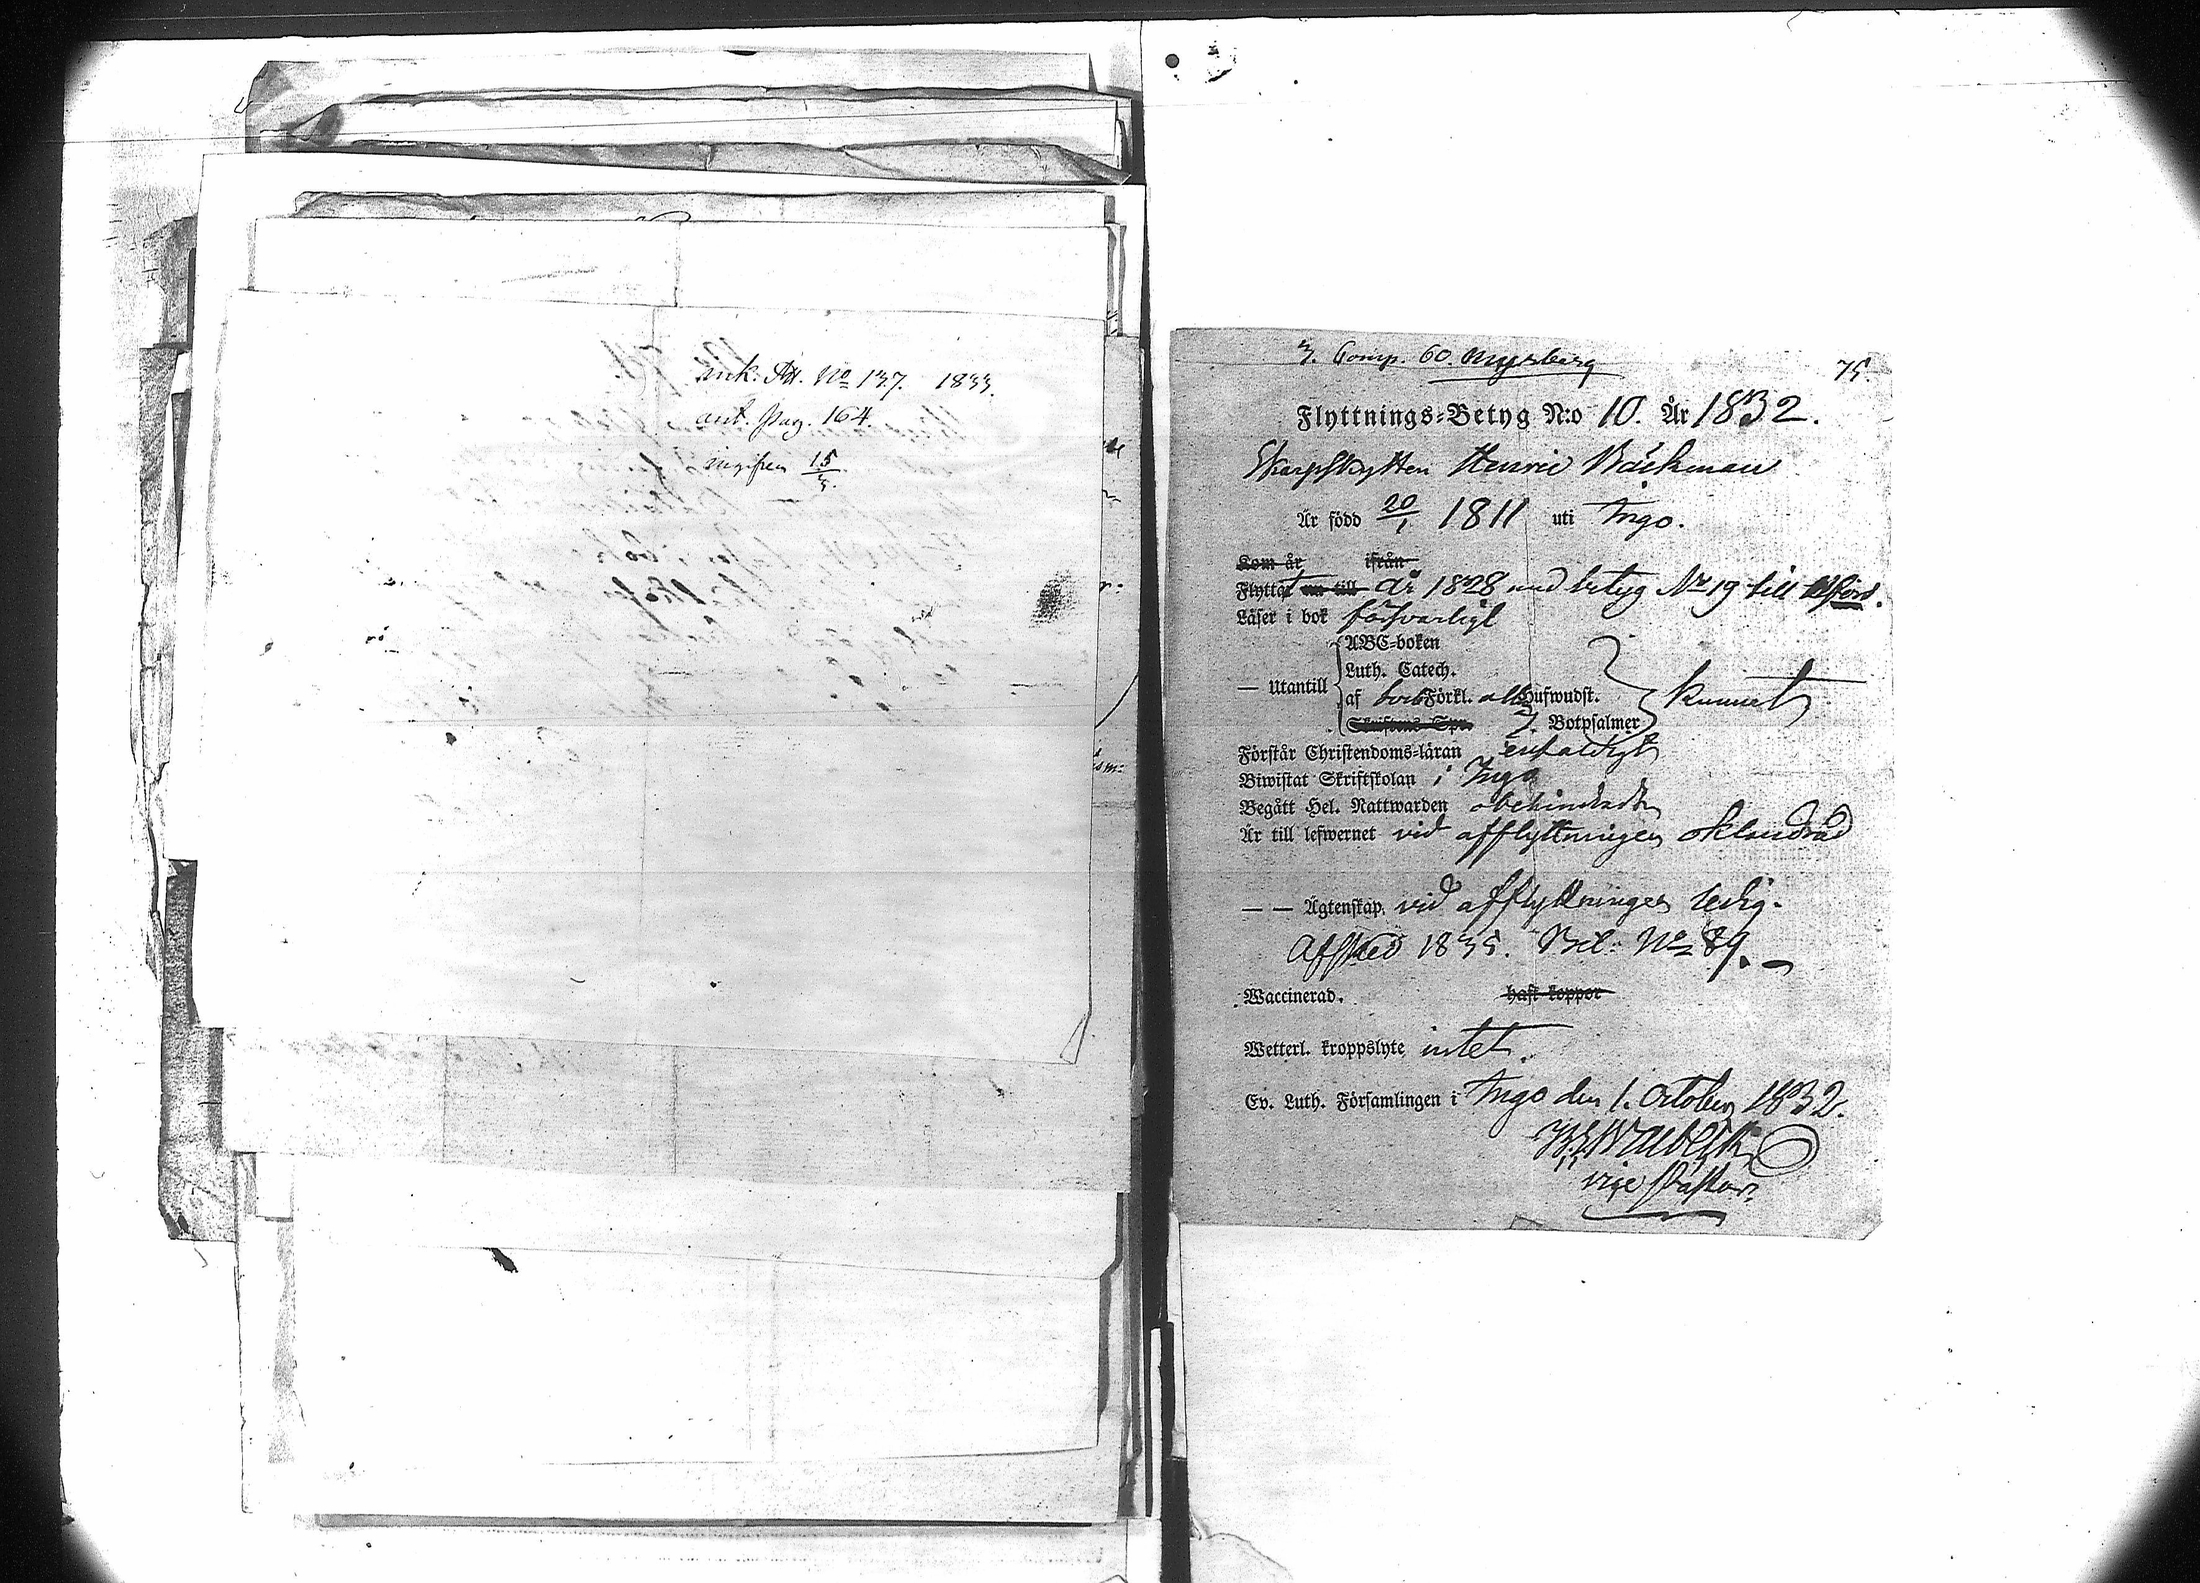 ank. Att. No 137. 1833.
ant. pag. 164.
ingifven 15/3.
3. Comp. 60. Mysberg
75.
Flyttnings-Betyg N:o 10. År 1832.
Skarpskytten Henric Bäckman
Är född 20/1 1811 uti Ingo.
Kom år ifrån
Flyttat nu till år 1828 med betyg No 19 till
Läser i bok försvarligt
ABC-boken
Luth. Catech.
— Utantill
af Förkl. alla Hufwudst. kunnet
Skriftens Spr. 7. Botpsalmer
Förstår Christendoms-läran enfaldigt
Biwistat Skriftskolan i Ingo
Begått Hel. Nattwarden obehindradt
Är till lefwernet vid afflyttningen oklandrad
— — Ägtenskap. vid afflyttningen ledig.
Afsked 1835. Bet: No 89.
Waccinerad. haft koppor
Wetterl. kroppslyte intet.
Ev. Luth. Församlingen i Ingo den 1. October 1832.
vice Pastor.